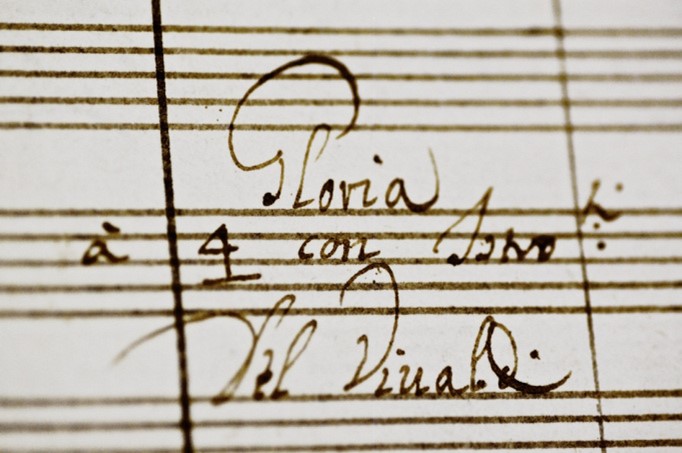 Gloria
à 4 con Istro ti:
Del Viualdi